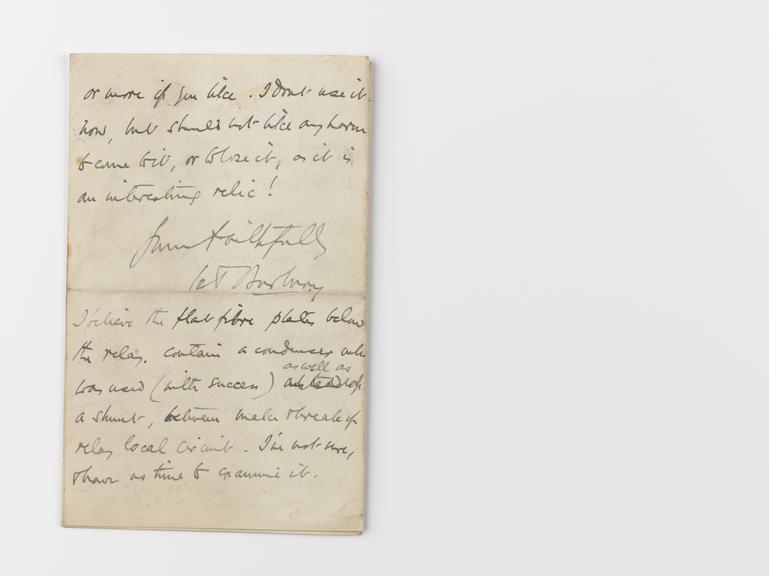 or more if you like. I don't use it
now, but should not like any harm
to come to it, or to lose it, as it is
an interesting relic!
Yours faithfully
I believe the flat fibre plates below
the relay, contain a condenser wh
as well as
was used (with success) instead of
a shunt, between make & break of
relay local circuit. I'm not sure,
& have no time to examine it.